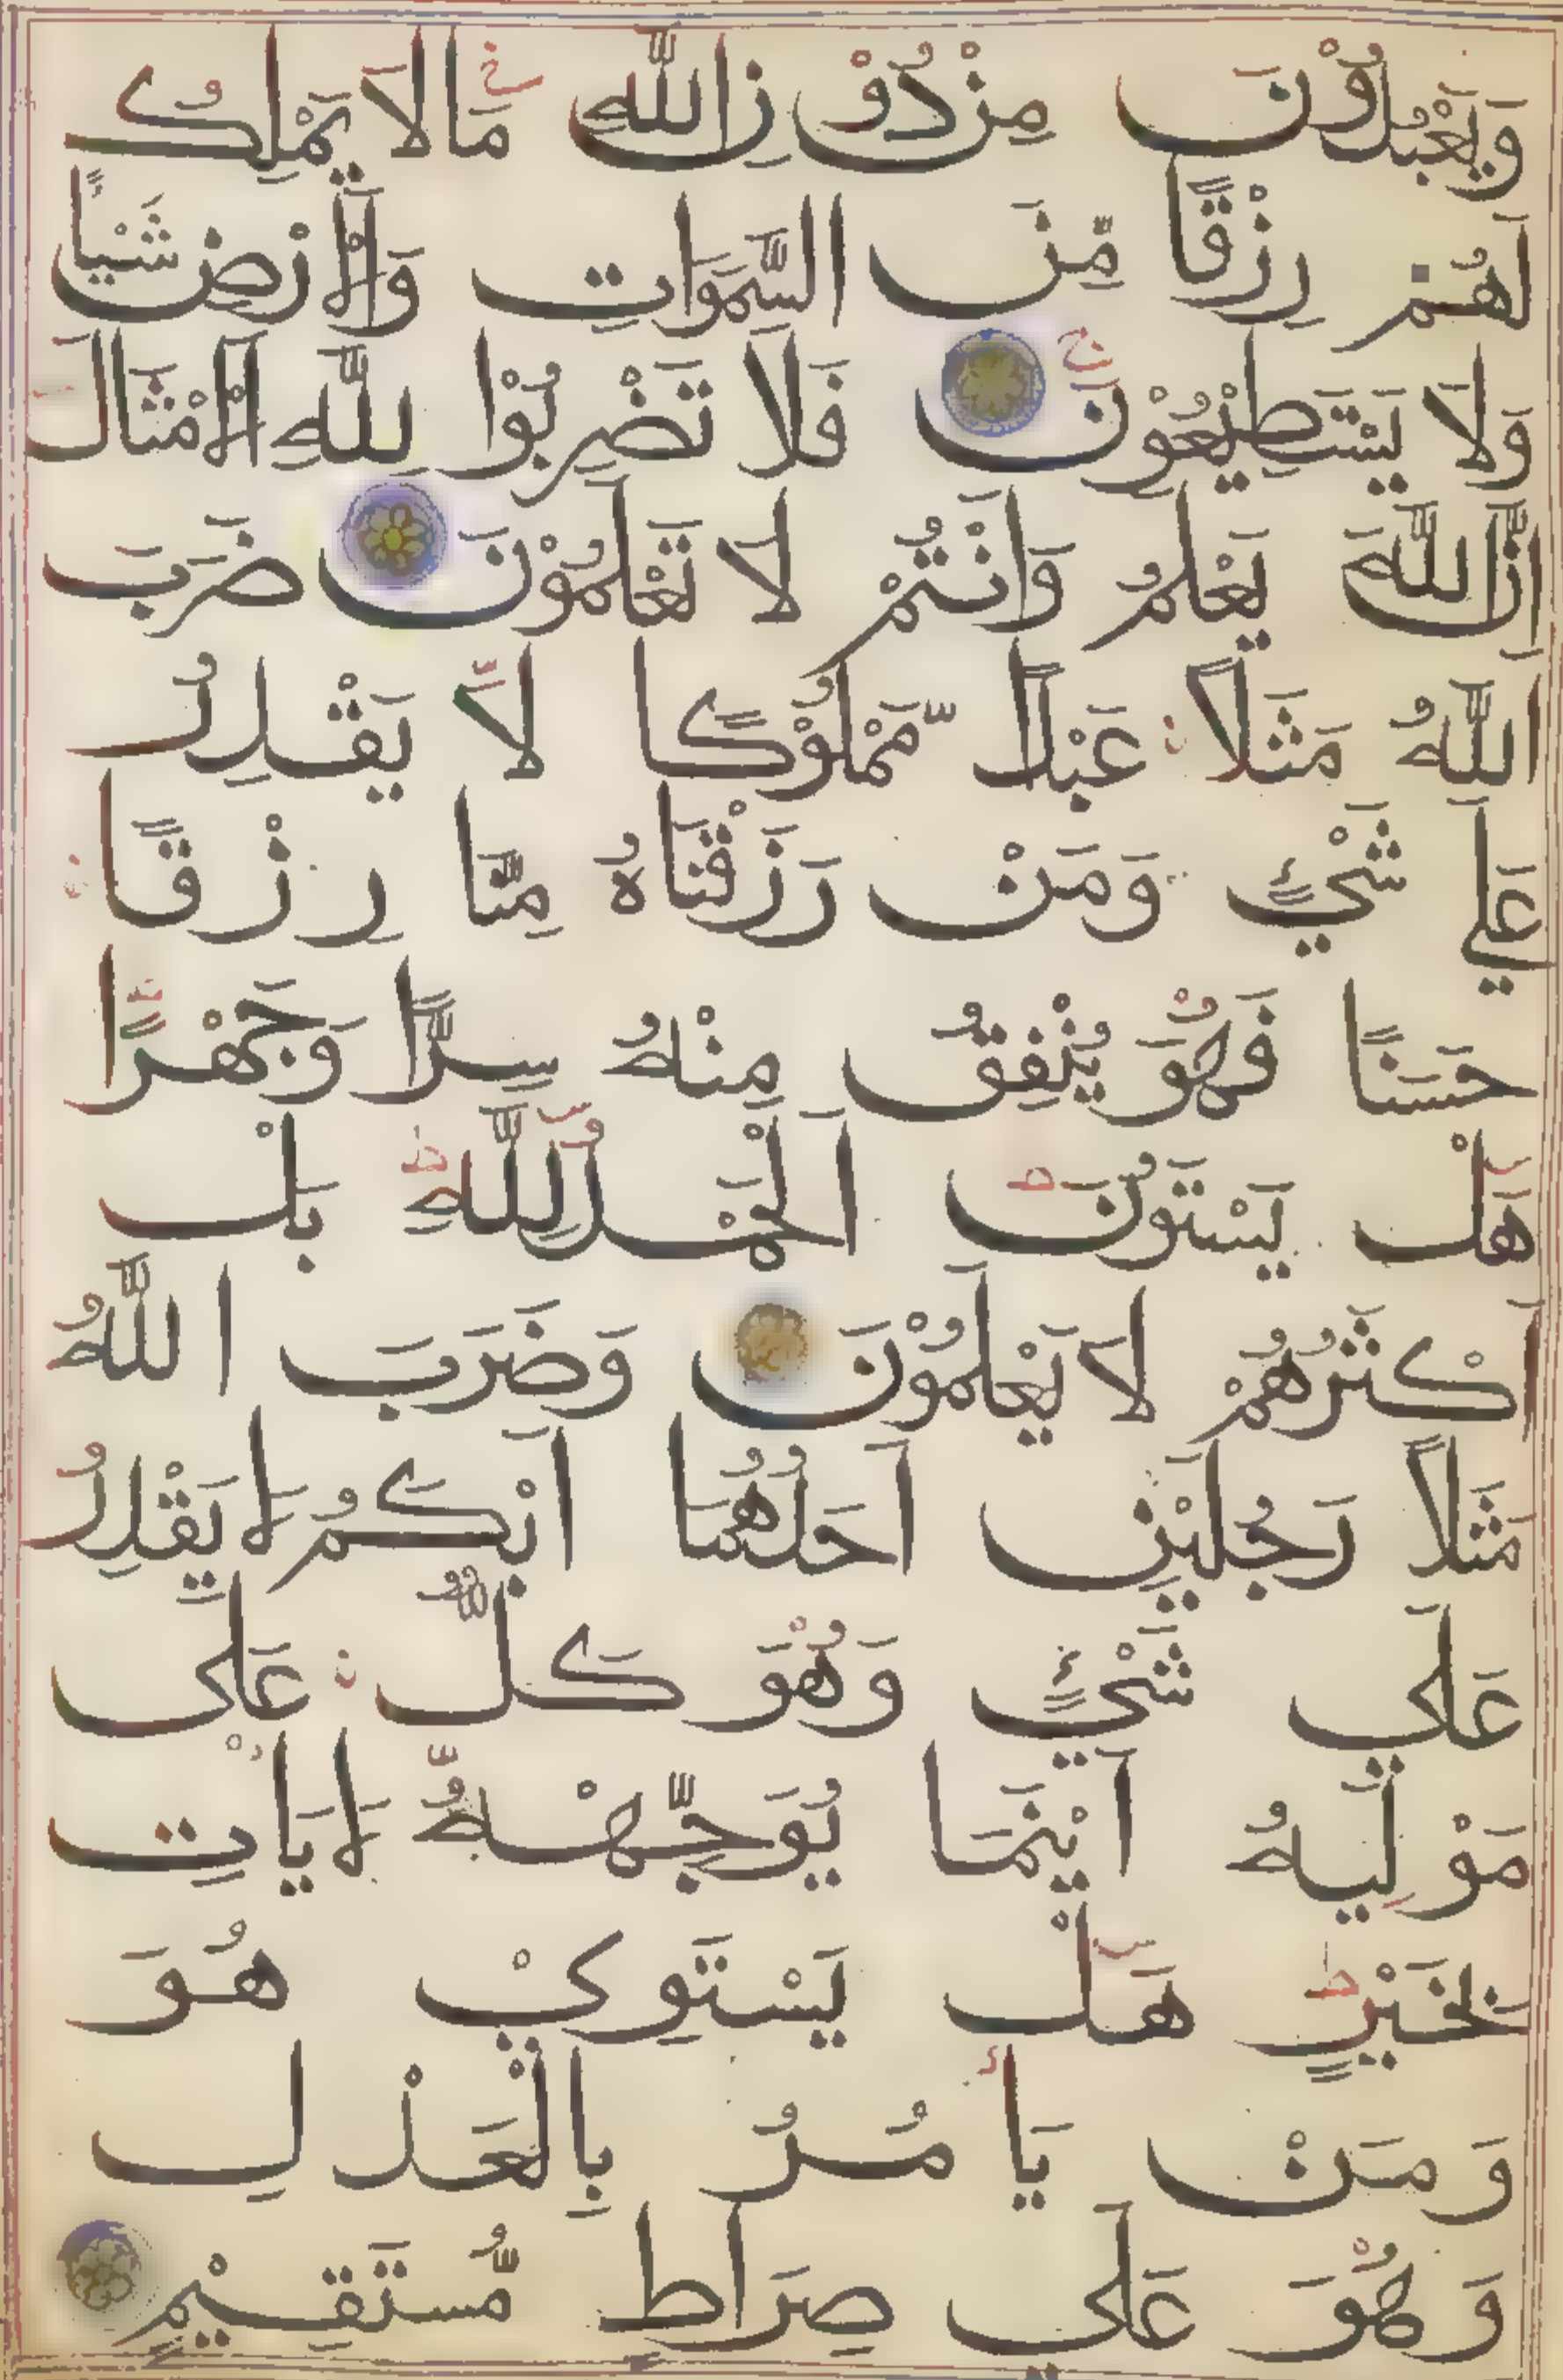 وَيَعْبُدُوْنَ مِنْ دُوْنِ اللّٰهِ مَالَا يَمْلِكُ
لَهُمْ رِزْقًا مِّنَ السَّمٰوَاتِ وَالْاَرْضِ شَيْـًٔا
وَلَا يَسْتَطِيْعُوْنَ فَلَا تَضْرِبُوْا لِلّٰهِ الْاَمْثَالَ
اِنَّ اللّٰهَ يَعْلَمُ وَاَنْتُمْ لَا تَعْلَمُوْنَ ضَرَبَ
اللّٰهُ مَثَلًا عَبْدًا مَّمْلُوْكًا لَّا يَقْدِرُ
عَلٰي شَيْءٍ وَمَنْ رَزَقْنَاهُ مِنَّا رِزْقًا
حَسَنًا فَهُوَ يُنْفِقُ مِنْهُ سِرًّا وَجَهْرًا
هَلْ يَسْتَوُنَ اَلْحَمْدُ لِلّٰهِ بَلْ
اَكْثَرُهُمْ لَا يَعْلَمُوْنَ وَضَرَبَ اللّٰهُ
مَثَلًا رَجُلَيْنِ اَحَدُهُمَا اَبْكَمُ لَا يَقْدِرُ
عَلٰي شَيْءٍ وَهُوَ كَلٌّ عَلٰى
مَوْلٰيهُ اَيْنَمَا يُوَجِّهْهُّ لَا يَاتِ
بِخَيْرٍ هَلْ يَسْتَوِيْ هُوَ
وَمَنْ يَأمُرُ بِالْعَدْلِ
وَهُوَ عَلٰي صِرَاطٍ مُّسْتَقِيْمٍ